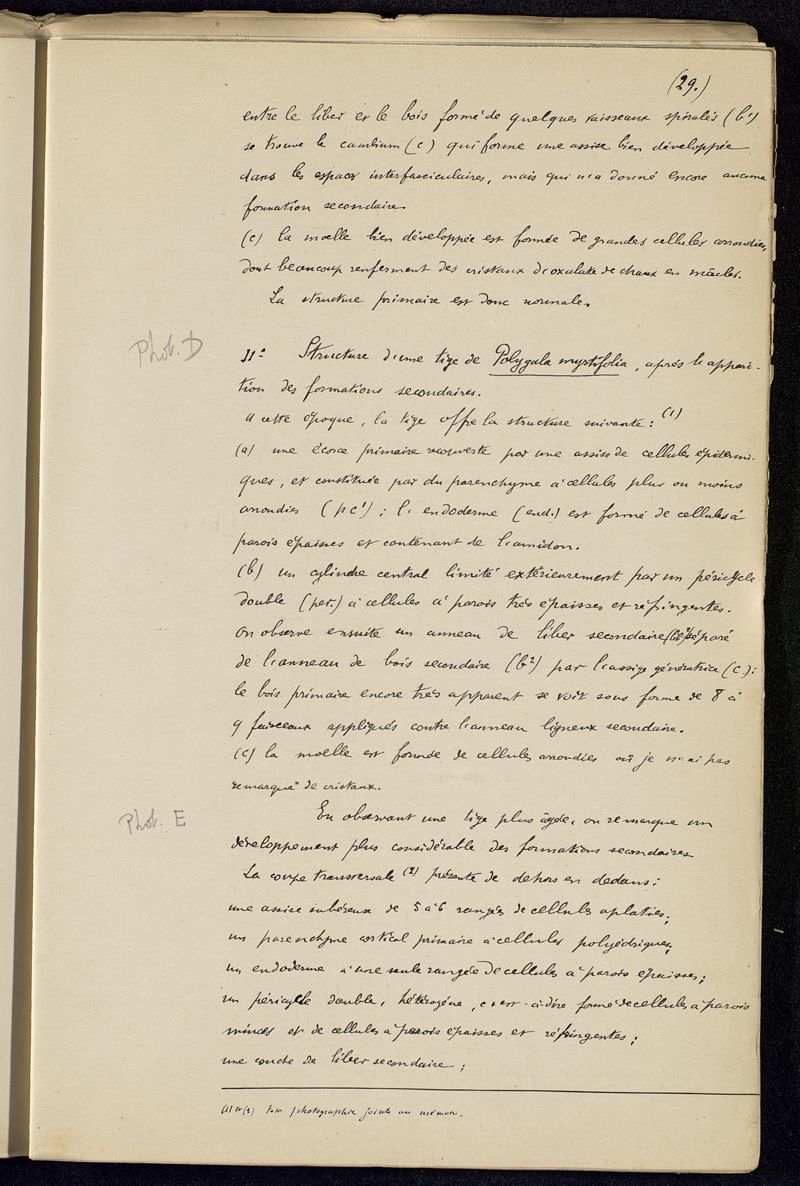 (29.)
entre le liber et le bois formé de quelques vaisseaux spiralés (b¹)
se trouve le cambium (c) qui forme une assise bien développée
dans les espaces interfasciculaires, mais qui n'a donné encore aucune
formation secondaire.
(c) la moelle bien développée est formée de grandes cellules arrondies,
dont beaucoup renferment des cristaux d'oxalate de chaux en mâcles.
La structure primaire est donc normale.
Phot. D
II° Structure d'une tige de Polygala myrtifolia, après l'appari-
tion des formations secondaires.
A cette époque, la tige offre la structure suivante: (1)
(a) une écorce primaire recouverte par une assise de cellules épidermi-
ques, et constituée par du parenchyme à cellules plus ou moins
arrondies (pc¹); l'endoderme (end.) est formé de cellules à
parois épaisses et contenant de l'amidon.
(b) un cylindre central limité extérieurement par un péricycle
double (per.) à cellules à parois très épaisses et réfringentes.
On observe ensuite un anneau de liber secondaire (lib²) séparé
de l'anneau de bois secondaire (b²) par l'assise génératrice (c.);
le bois primaire encore très apparent se voit sous forme de 8 à
9 faisceaux appliqués contre l'anneau ligneux secondaire.
(c) la moelle est formée de cellules arrondies où je n'ai pas
remarqué de cristaux.
Phot. E
En observant une tige plus âgée, on remarque un
développement plus considérable des formations secondaires
La coupe transversale (2) présente de dehors en dedans:
une assise subéreuse de 5 à 6 rangées de cellules aplaties;
un parenchyme cortical primaire à cellules polyédriques;
un endoderme à une seule rangée de cellules à parois épaisses;
un péricycle double, hétérogène, c'est-à-dire formé de cellules à parois
minces et de cellules à parois épaisses et réfringentes;
une couche de liber secondaire;
(1) et (2) Voir photographie jointe au mémoire.